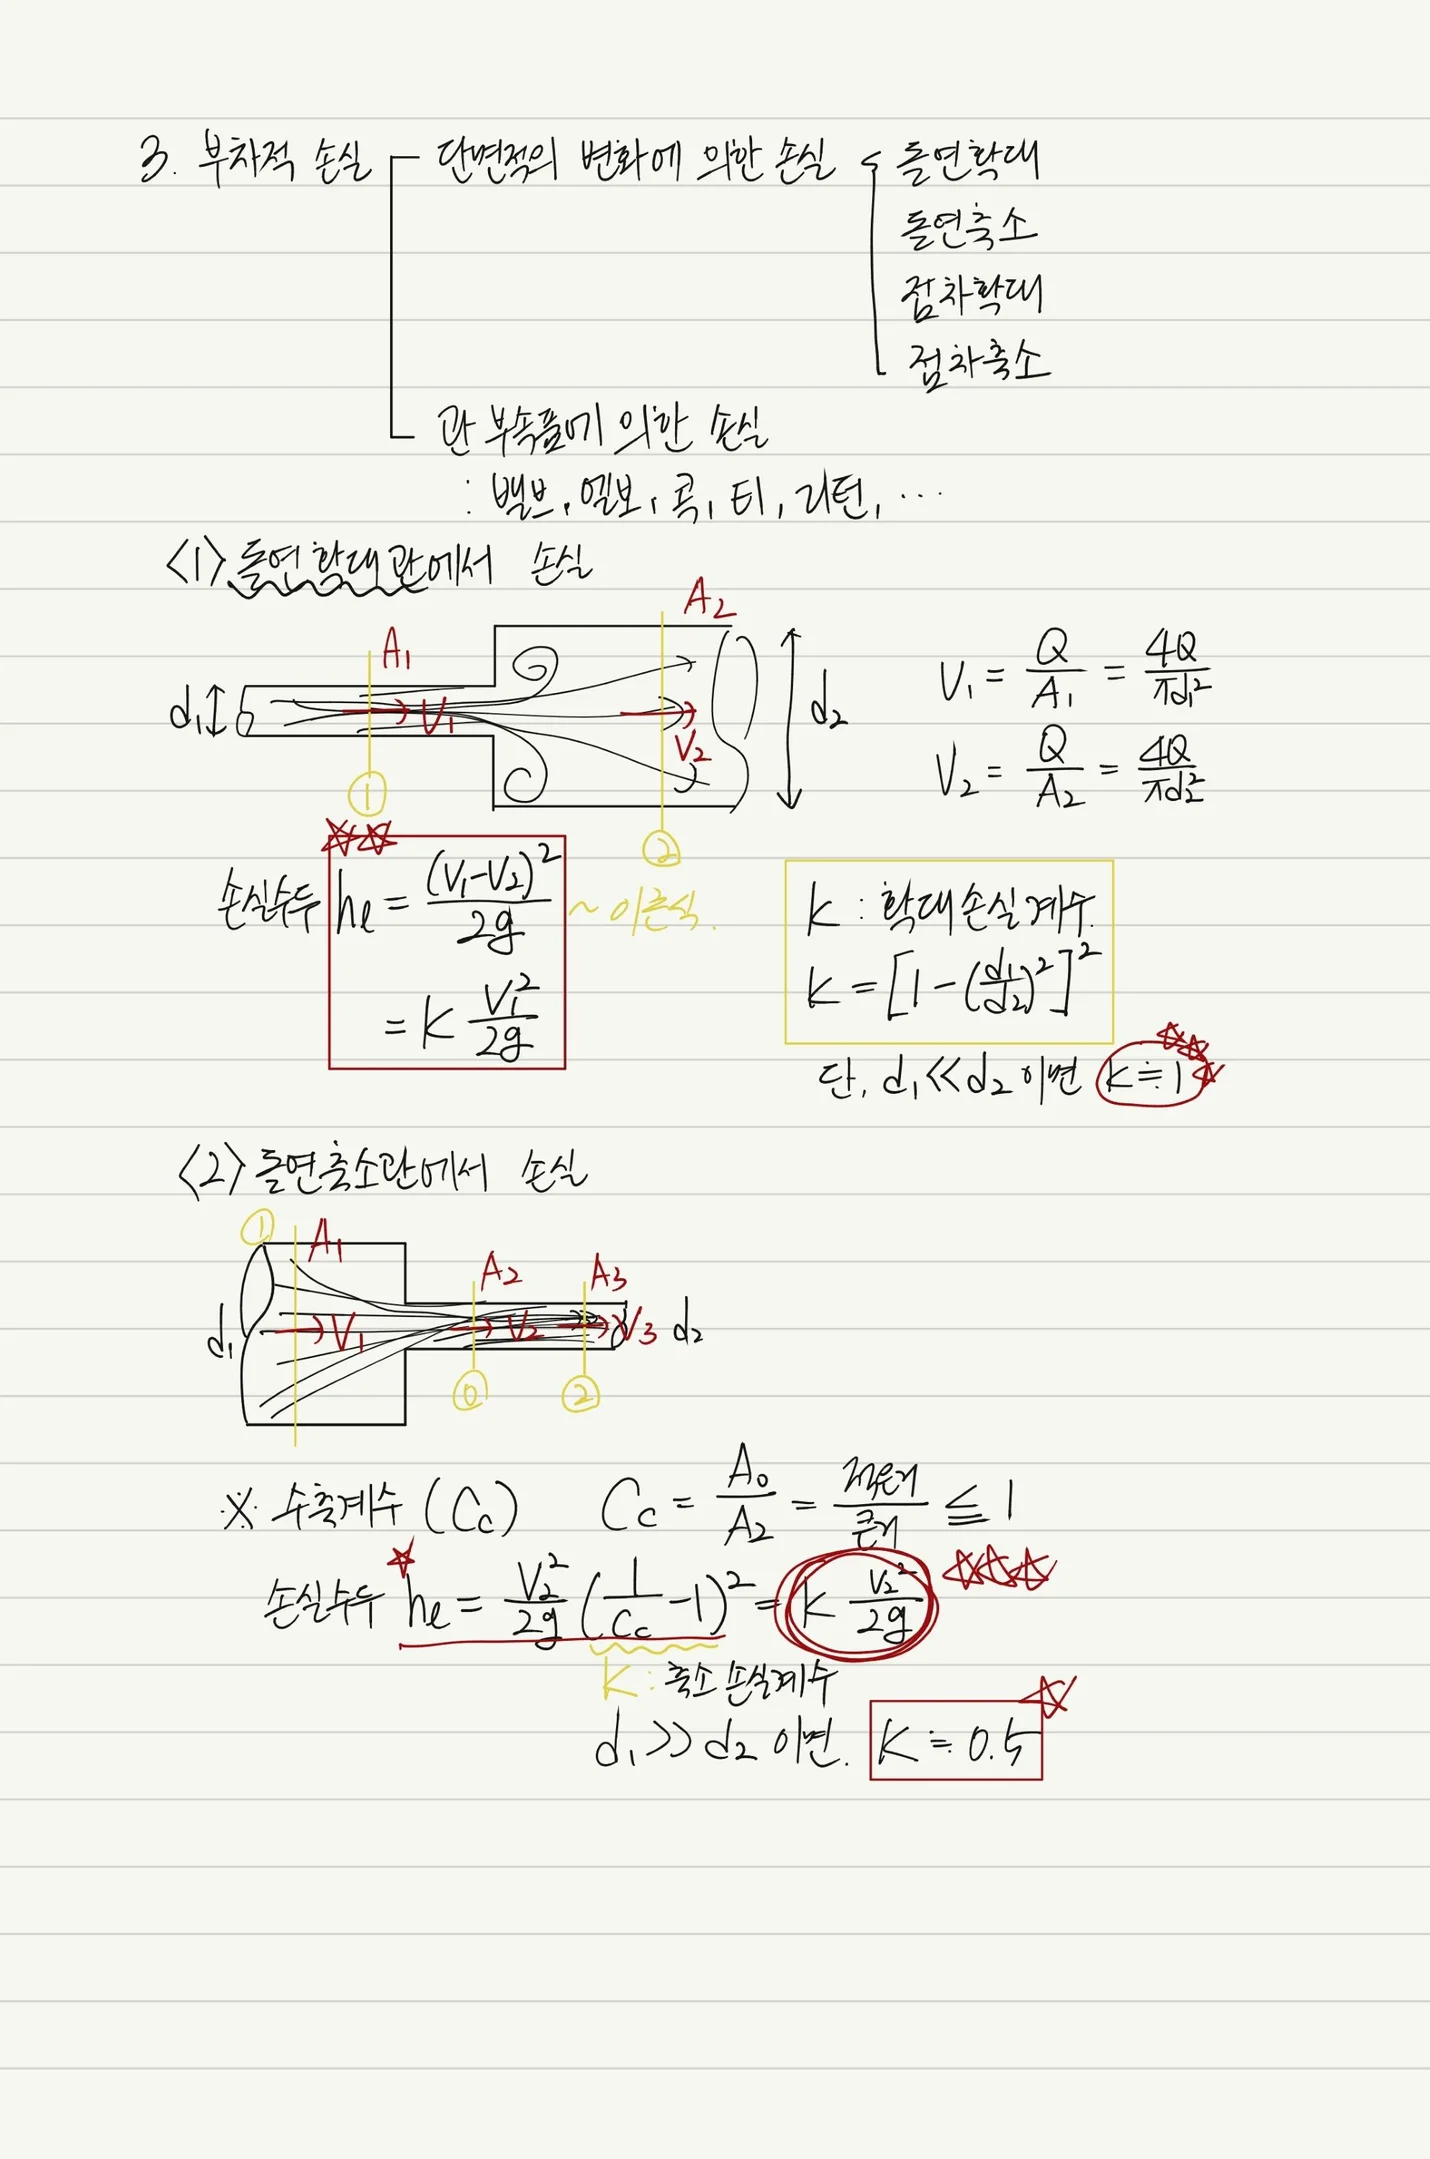 3. 부차적 손실 단면적의 변화에 의한 손실 돌연확대
돌연축소
점차확대
점차축소
관 부속품에 의한 손실
: 밸브, 엘보, 콕, 티, 리턴, ...
<1> 돌연확대관에서 손실
A₁ A₂
d₁ V₁ V₂ d₂
① ②
V₁ = Q/A₁ = 4Q/πd₁²
V₂ = Q/A₂ = 4Q/πd₂²
손실수두 hℓ = (V₁-V₂)²/2g ~이론식.
= K V₁²/2g
K : 확대손실계수.
K = [1-(d₁/d₂)²]²
단, d₁≪d₂ 이면 K≒1
<2> 돌연축소관에서 손실
① A₁ A₂ A₃
d₁ V₁ V₂ V₃ d₂
⓪ ②
※ 수축계수 (Cc) Cc = A₀/A₂ = 적은거/큰거 ≦ 1
손실수두 hℓ = V₂²/2g (1/Cc -1)² = K V₂²/2g
K : 축소손실계수
d₁≫d₂ 이면. K≒0.5